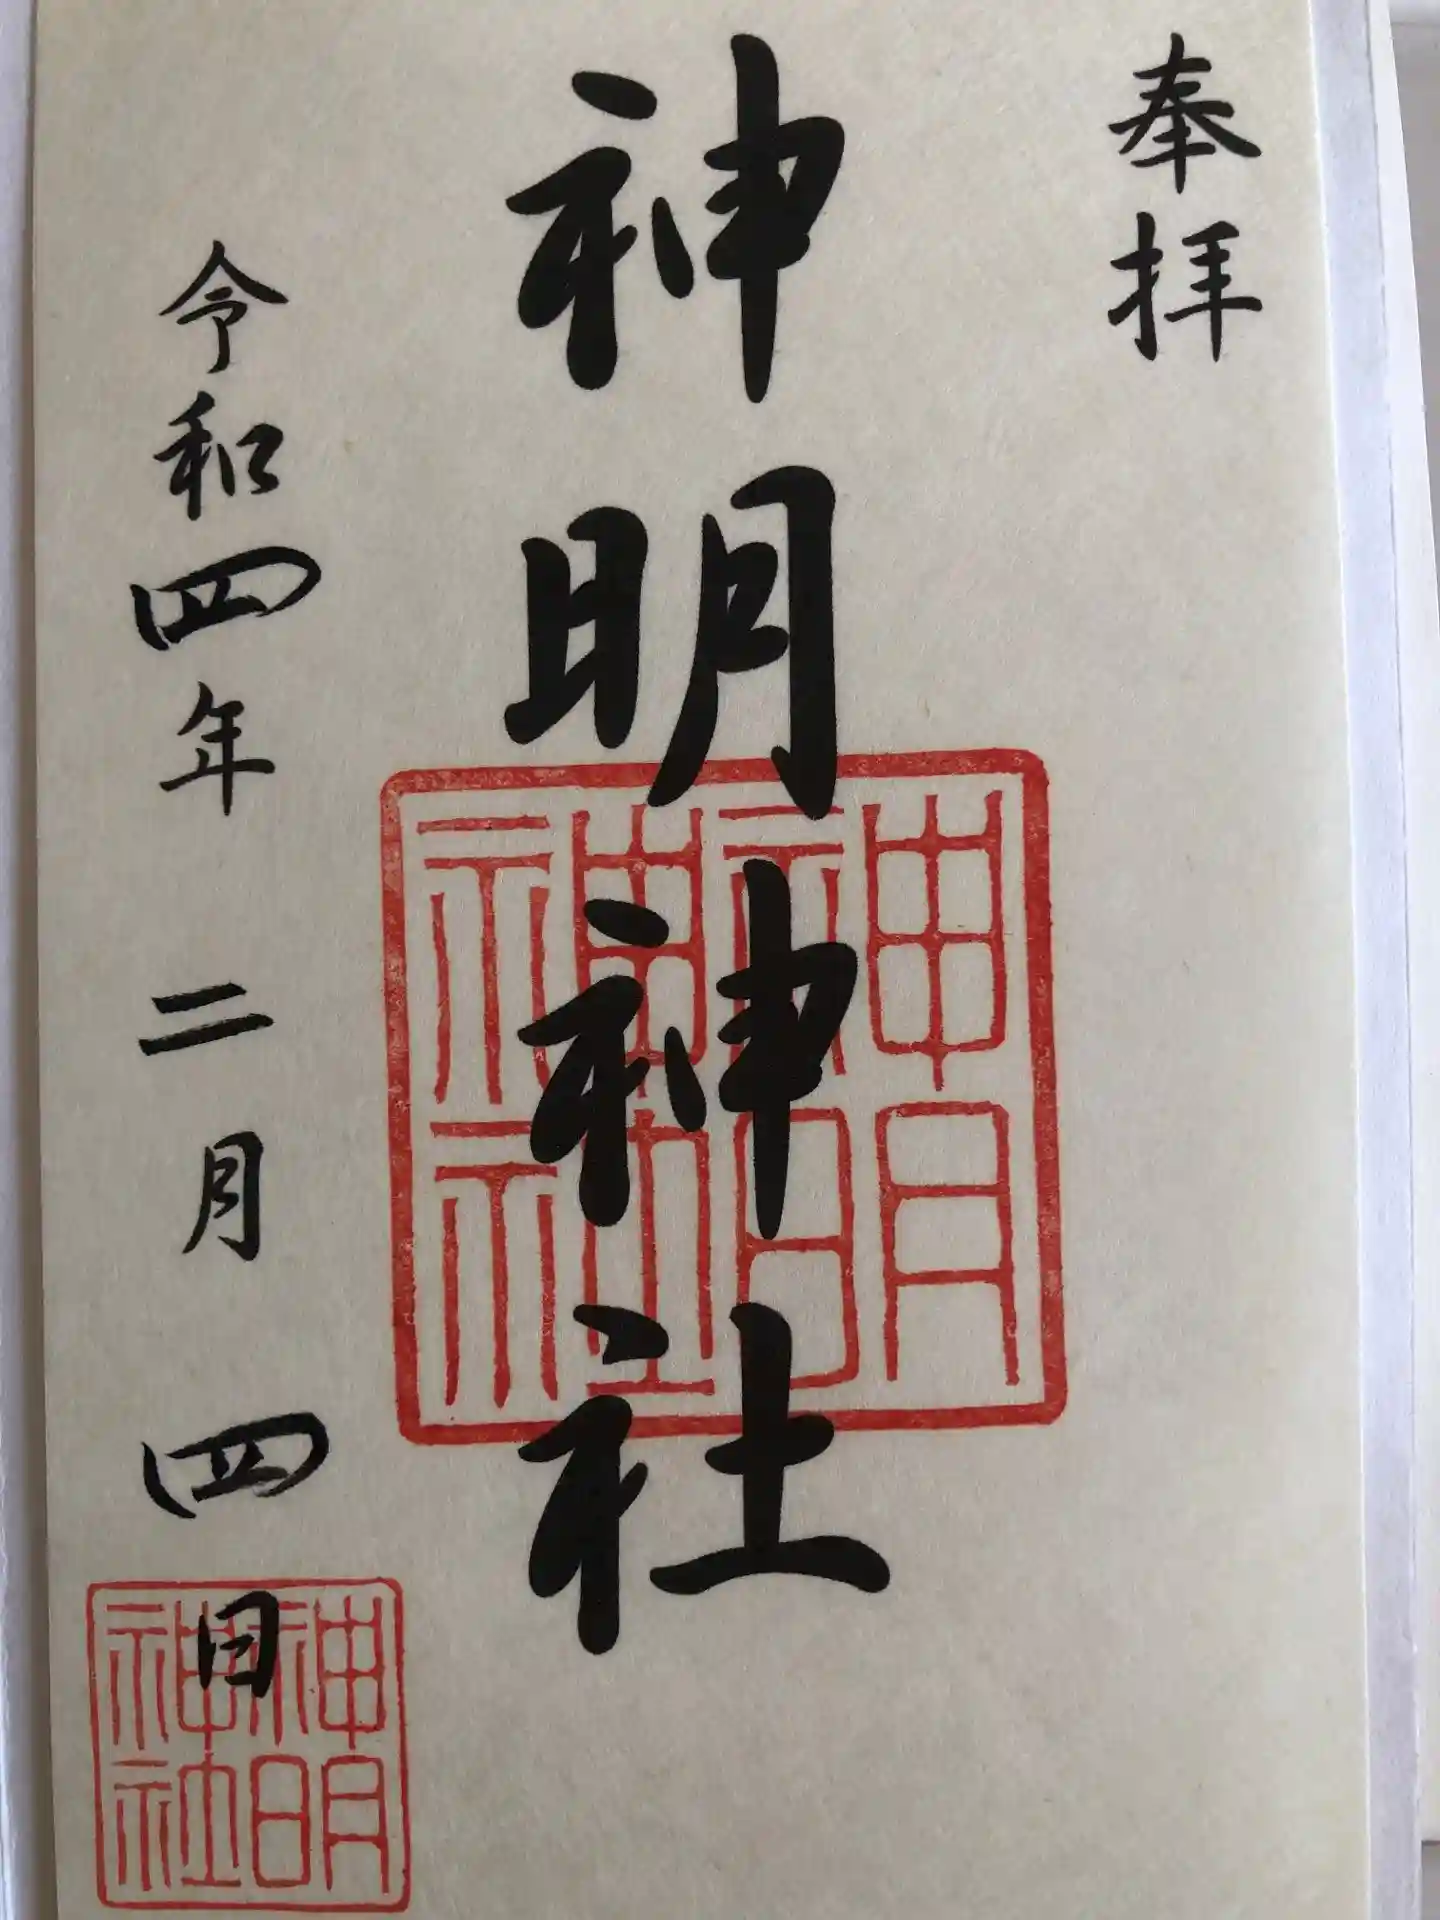 奉拝
神明神社
神明神社
令和四年二月四日
神明神社